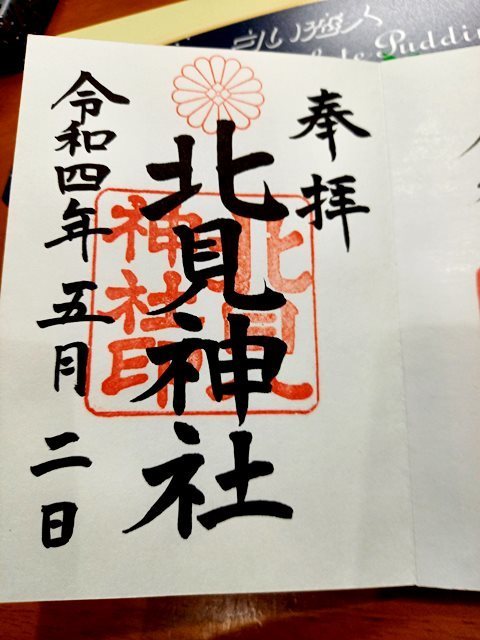 奉拝
北見神社
北見
神社印
令和四年五月二日
Pudding